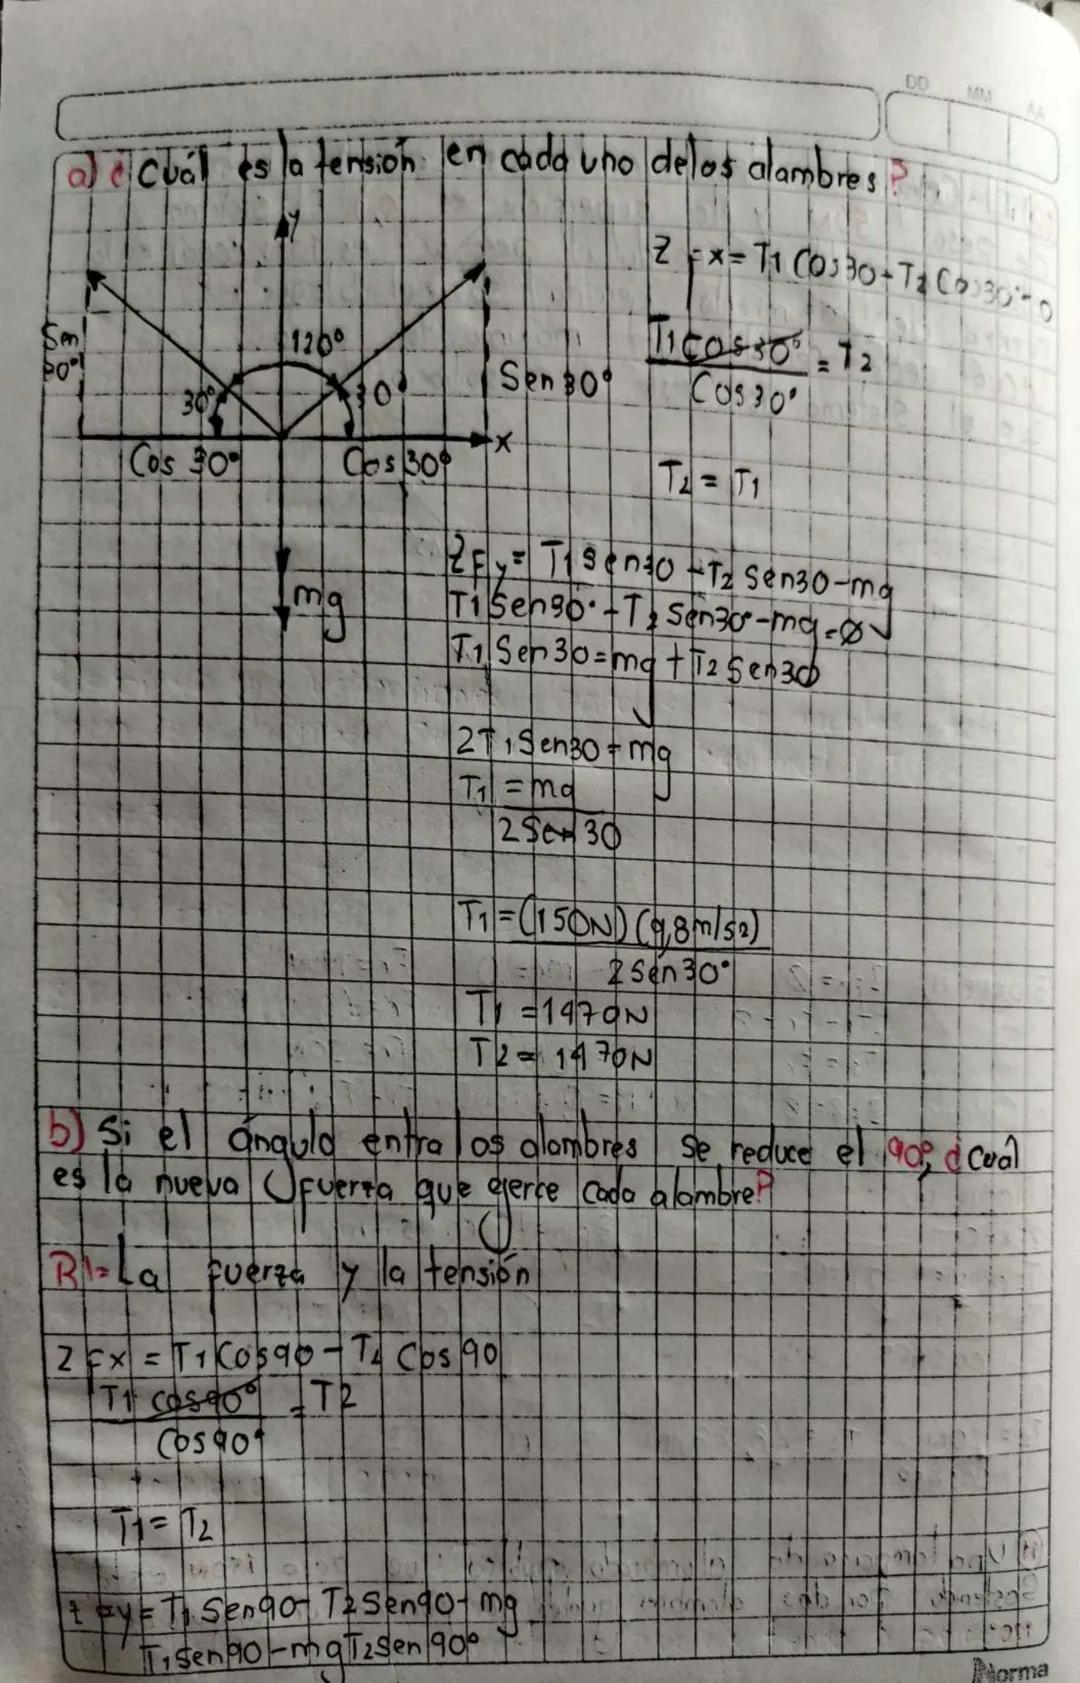 DD MM AA
a) ¿Cuál es la tensión en cada uno de los alambres?
y
Z Fx = T1 Cos30 - T2 Cos30° = 0
Sen 30°
120°
T1 cos 30° = T2
Cos 30°
30°
30
Sen 30°
x
Cos 30°
Cos 30°
T2 = T1
mg
ZFy = T1 Sen30 - T2 Sen30 - mg
T1 Sen30° - T2 Sen30° - mg = 0
T1 Sen30 = mg + T2 Sen30
2T1 Sen30 = mg
T1 = mg
2Sen 30
T1 = (150N) (9,8m/s2)
2 Sen 30°
T1 = 1470N
T2 = 1470N
b) Si el ángulo entra los alambres se reduce el 90°, ¿cuál
es la nueva fuerza que ejerce cada alambre?
R1= La fuerza y la tensión
Z Fx = T1 Cos90 - T2 Cos 90
T1 cos90° = T2
Cos 90°
T1 = T2
Z Fy = T1 Sen90 - T2 Sen90 - mg
T1 Sen 90 - mg T2 Sen 90°
Norma